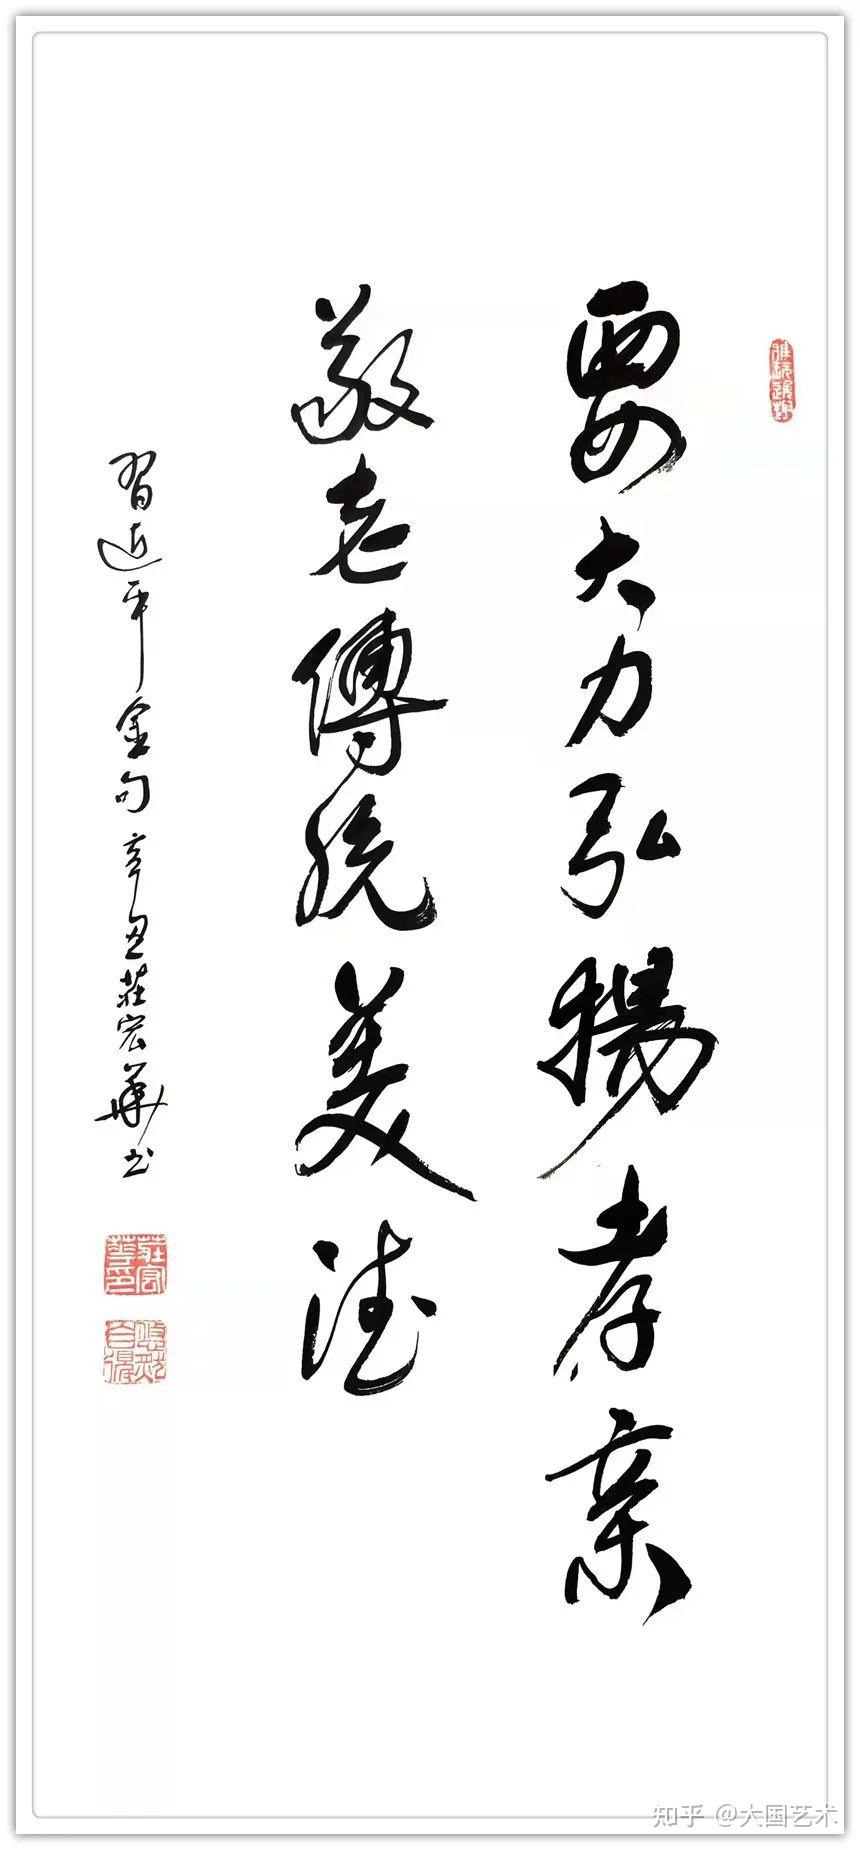 要大力弘揚孝亲
敬老傳統美德
習近平金句辛丑莊宏華书
莊宏華印
知乎 @大国艺术